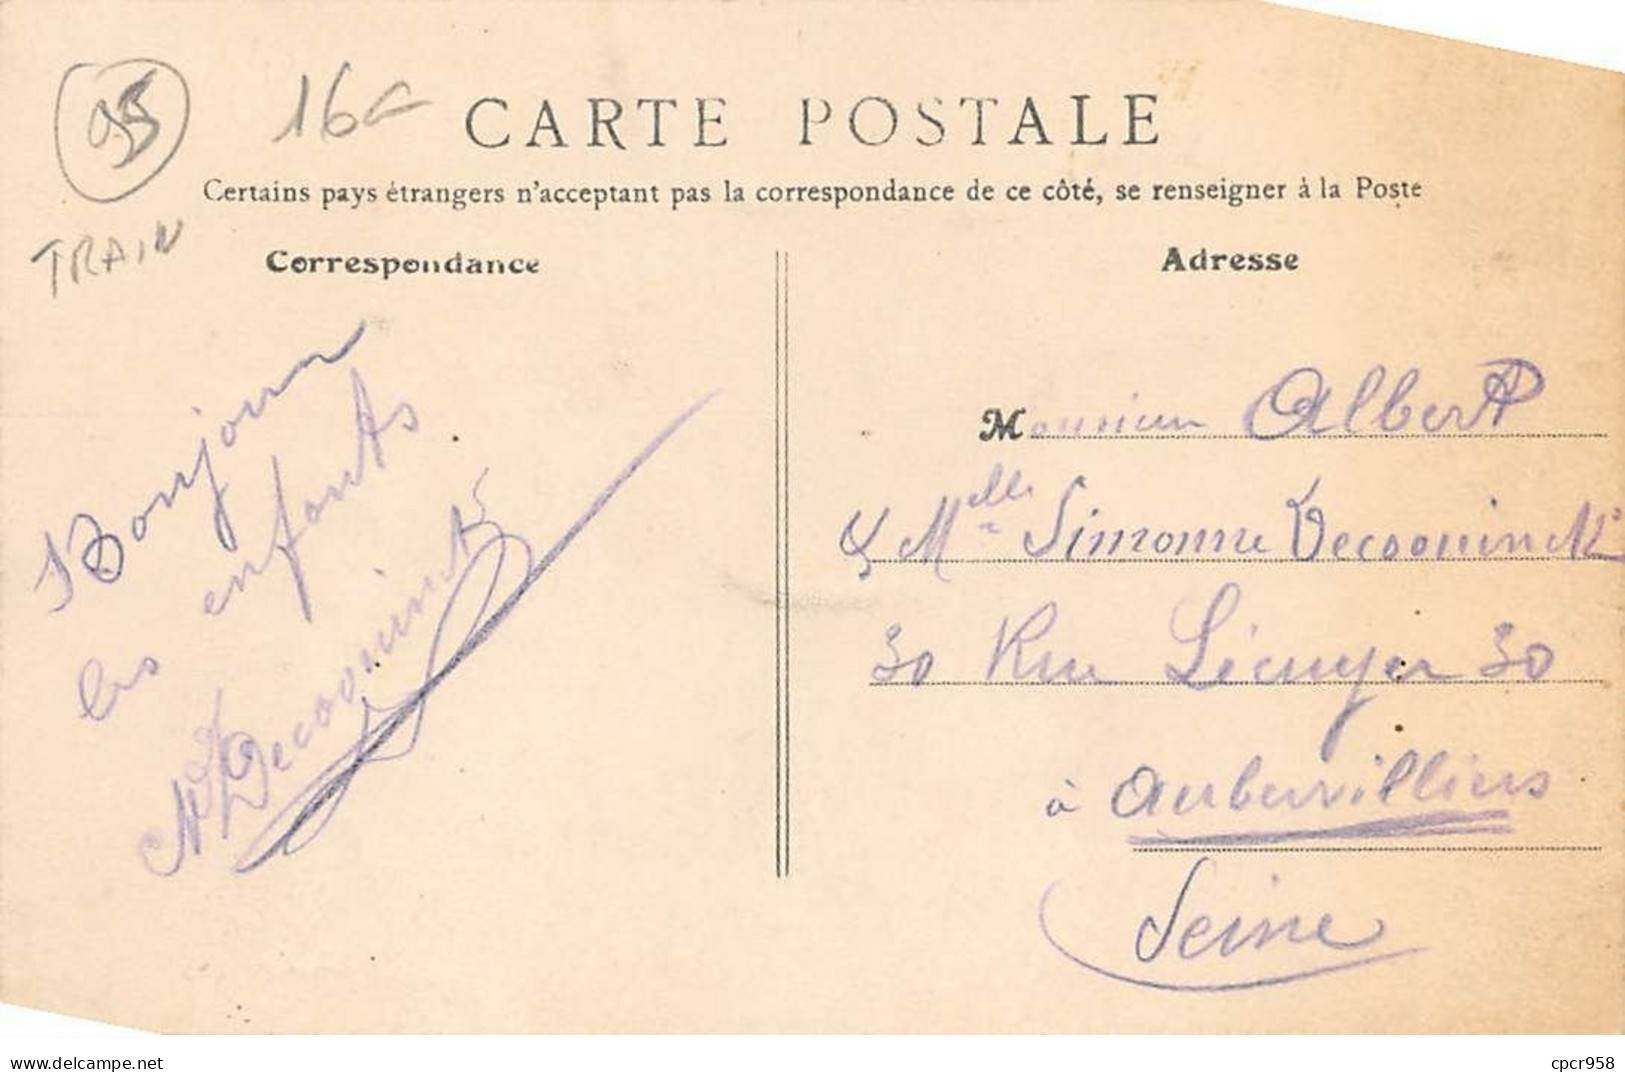 95
16
CARTE POSTALE
Certains pays étrangers n'acceptant pas la correspondance de ce côté, se renseigner à la Poste
TRAIN
Correspondance
Bonjour
les enfants
Decooninck
Adresse
Monsieur Albert
& Melle Simonne Decooninck
30 Rue Lécuyer 30
à Aubervilliers
Seine
www.delcampe.net
cpcr958